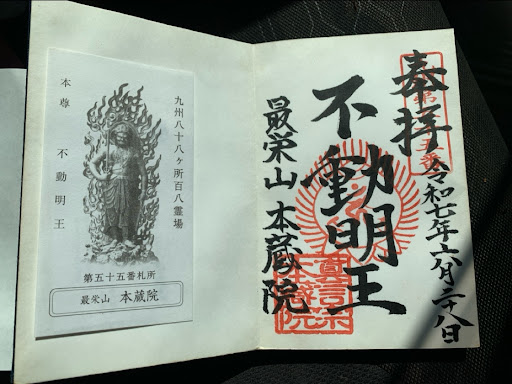 奉拝
令和七年六月二十八日
不動明王
最栄山 本蔵院
眞言宗
本蔵院
九州八十八ヶ所百八霊場
本尊 不動明王
第五十五番札所
最栄山 本蔵院